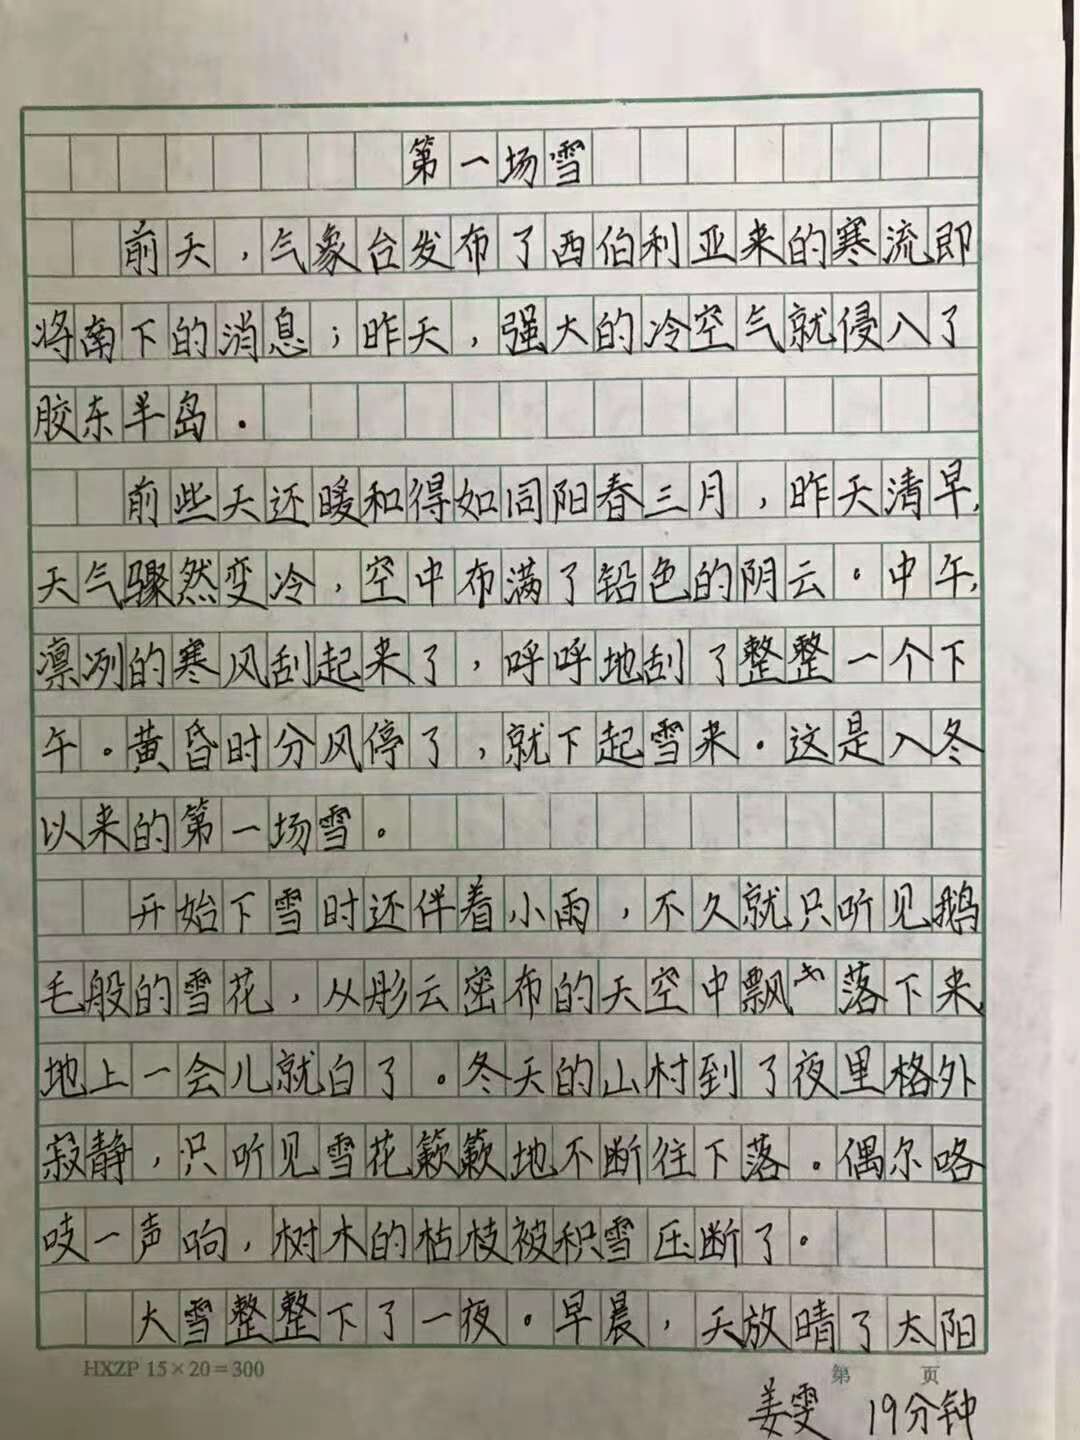 第一场雪
前天，气象台发布了西伯利亚来的寒流即
将南下的消息；昨天，强大的冷空气就侵入了
胶东半岛.
前些天还暖和得如同阳春三月，昨天清早,
天气骤然变冷，空中布满了铅色的阴云。中午,
凛冽的寒风刮起来了，呼呼地刮了整整一个下
午。黄昏时分风停了，就下起雪来.这是入冬
以来的第一场雪。
开始下雪时还伴着小雨，不久就只听见鹅
毛般的雪花，从彤云密布的天空中飘落下来
地上一会儿就白了。冬天的山村到了夜里格外
寂静，只听见雪花簌簌地不断往下落。偶尔咯
吱一声响，树木的枯枝被积雪压断了。
大雪整整下了一夜。早晨，天放晴了太阳
HXZP 15×20=300 第 页
姜雯 19分钟